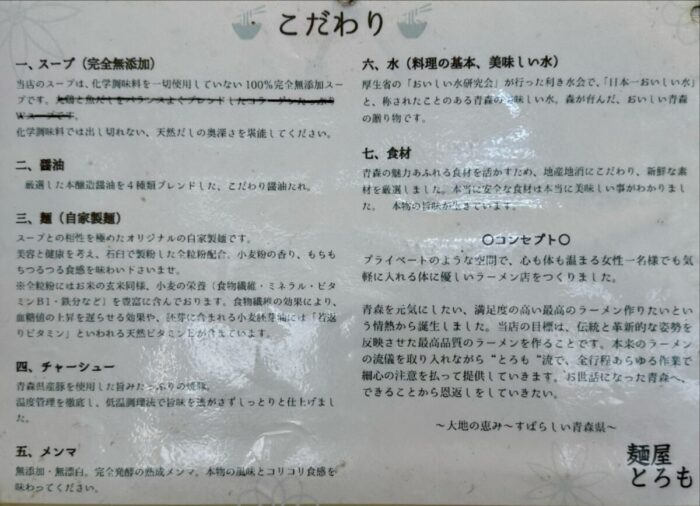 こだわり
一、スープ（完全無添加）
当店のスープは、化学調味料を一切使用していない100%完全無添加スー
プです。丸鶏と魚だしをバランスよくブレンドしたコラーゲンたっぷり
Wスープです。
化学調味料では出し切れない、天然だしの奥深さを堪能してください。
二、醤油
厳選した本醸造醤油を４種類ブレンドした、こだわり醤油たれ。
三、麺（自家製麺）
スープとの相性を極めたオリジナルの自家製麺です。
美容と健康を考え、石臼で製粉した全粒粉配合。小麦粉の香り、もちも
ちつるつる食感を味わい下さいませ。
※全粒粉にはお米の玄米同様、小麦の栄養（食物繊維・ミネラル・ビタ
ミンB1・鉄分など）を豊富に含んでおります。食物繊維の効果により、
血糖値の上昇を遅らせる効果や、胚芽に含まれる小麦胚芽油には「若返
りビタミン」といわれる天然ビタミンEが含まています。
四、チャーシュー
青森県産豚を使用した旨みたっぷりの焼豚。
温度管理を徹底し、低温調理法で旨味を逃がさずしっとりと仕上げまし
た。
五、メンマ
無添加・無漂白。完全発酵の熟成メンマ。本物の風味とコリコリ食感を
味わってください。
六、水（料理の基本、美味しい水）
厚生省の「おいしい水研究会」が行った利き水会で、「日本一おいしい水」
と、称されたことのある青森の美味しい水。森が育んだ、おいしい青森
の贈り物です。
七、食材
青森の魅力あふれる食材を活かすため、地産地消にこだわり、新鮮な素
材を厳選しました。本当に安全な食材は本当に美味しい事がわかりまし
た。 本物の旨味が生きています。
〇コンセプト〇
プライベートのような空間で、心も体も温まる女性一名様でも気
軽に入れる体に優しいラーメン店をつくりました。
青森を元気にしたい、満足度の高い最高のラーメン作りたいとい
う情熱から誕生しました。当店の目標は、伝統と革新的な姿勢を
反映させた最高品質のラーメンを作ることです。本来のラーメン
の流儀を取り入れながら“とろも“流で、全行程あらゆる作業で
細心の注意を払って提供していきます。お世話になった青森へ、
できることから恩返しをしていきたい。
～大地の恵み～すばらしい青森県～
麺屋
とろも